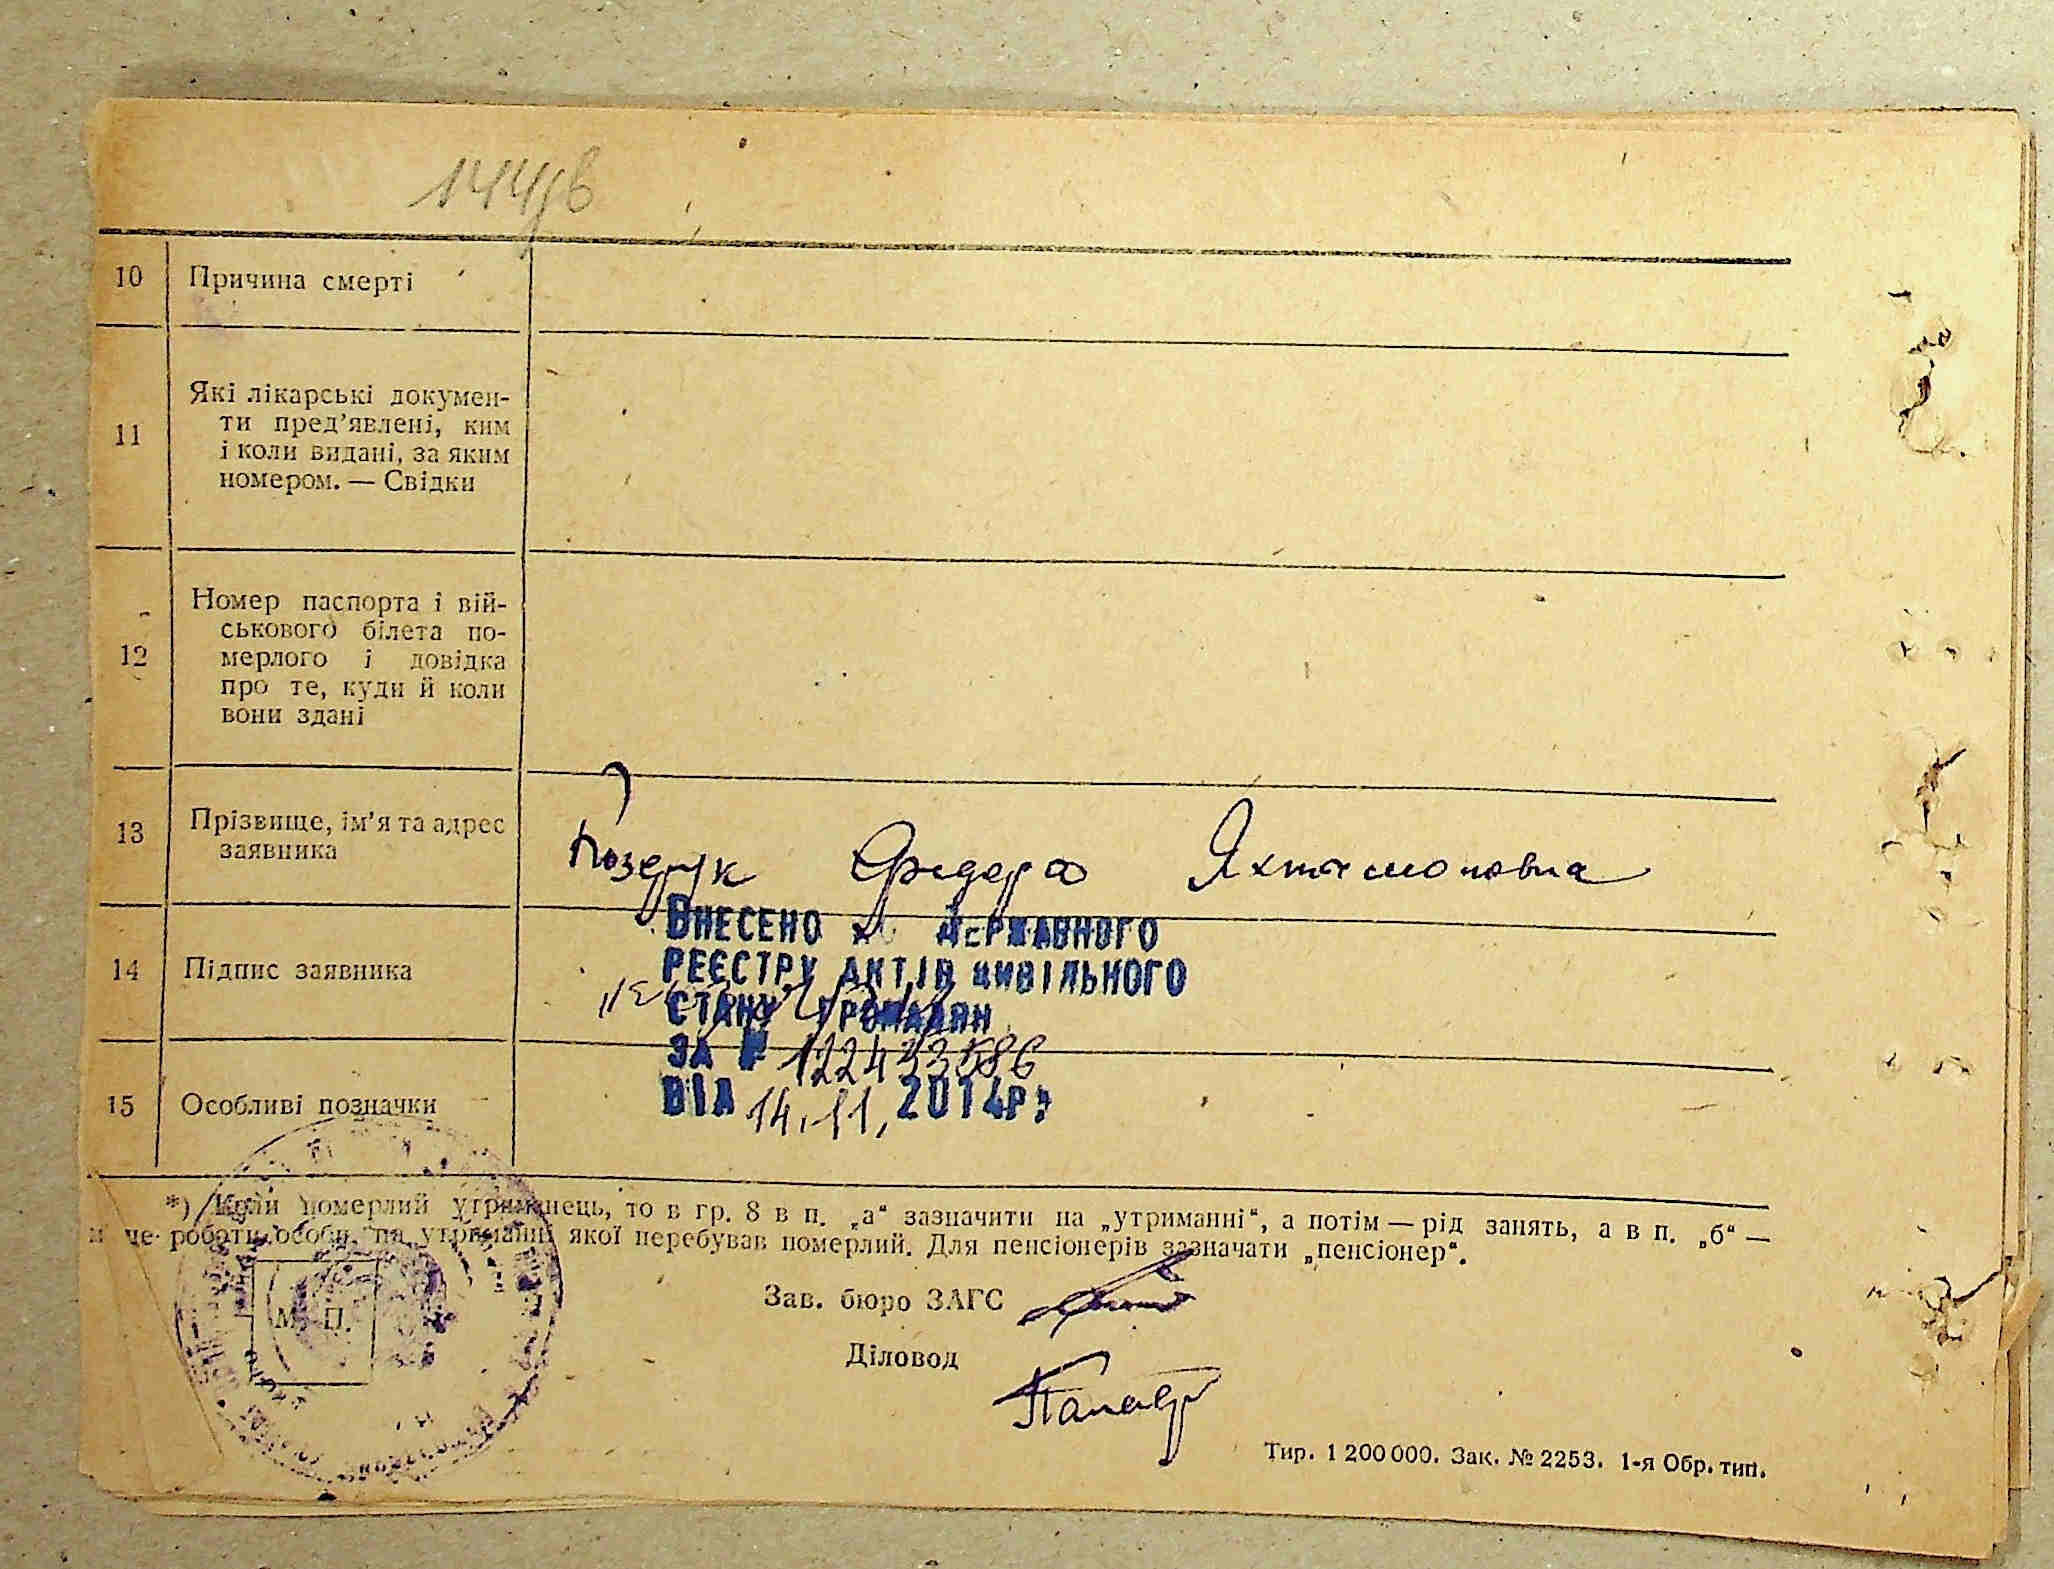 10 Причина смерті
11 Які лікарські докумен-
ти пред’явлені, ким
і коли видані, за яким
номером. — Свідки
12 Номер паспорта і вій-
ськового білета по-
мерлого і довідка
про те, куди й коли
вони здані
13 Прізвище, ім’я та адрес
заявника
Поздрук
14 Підпис заявника
Внесено до Державного
реєстру актів цивільного
стану громадян
за № 122433586
від 14.11. 2014р.
15 Особливі позначки
*) Коли померлий утриманець, то в гр. 8 в п. „а“ зазначити на „утриманні“, а потім — рід занять, а в п. „б“ —
місце роботи особи, на утриманні якої перебував померлий. Для пенсіонерів зазначати „пенсіонер“.
Зав. бюро ЗАГС
М. П.
Діловод
Тир. 1 200 000. Зак. № 2253. 1-я Обр. тип.